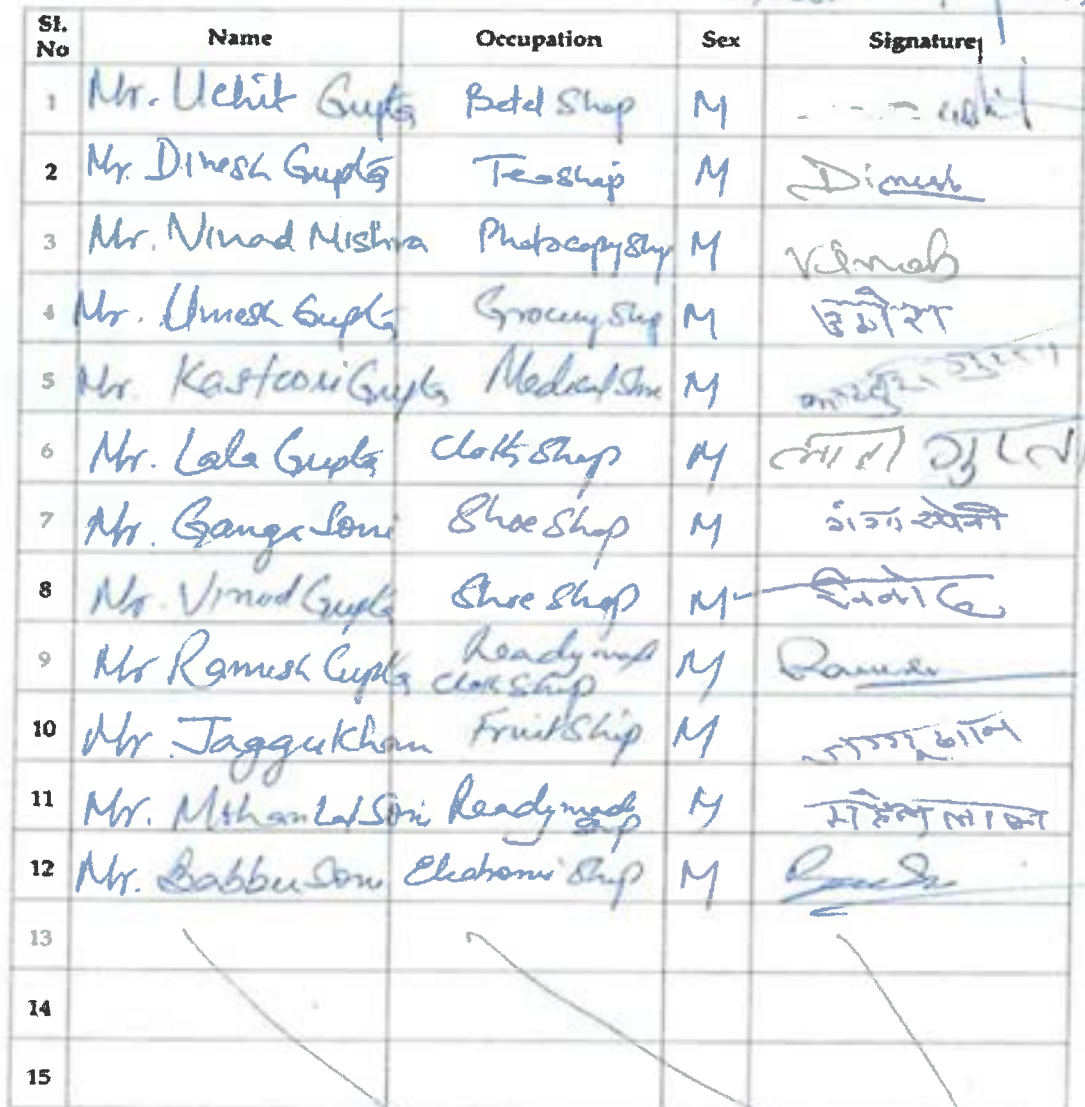 Sl. No Name Occupation Sex Signature
1 Mr. Uchit Gupta Betel Shop M
2 Mr. Dinesh Gupta Teashop M Dinesh
3 Mr. Vinod Mishra Photocopy Shop M Vinod
4 Mr. Umesh Gupta Grocery Shop M उमेश
5 Mr. Kastoori Gupta Medical Store M गुप्ता
6 Mr. Lala Gupta Cloth Shop M लाला गुप्ता
7 Mr. Ganga Soni Shoe Shop M गंगा सोनी
8 Mr. Vinod Gupta Shoe Shop M विनोद
9 Mr Ramesh Gupta Readymade Cloth Shop M Ramesh
10 Mr Jaggu Khan Fruit Shop M जग्गू खान
11 Mr. Mohan Lal Soni Readymade Shop M लाल
12 Mr. Babbu Soni Electronic Shop M
13
14
15